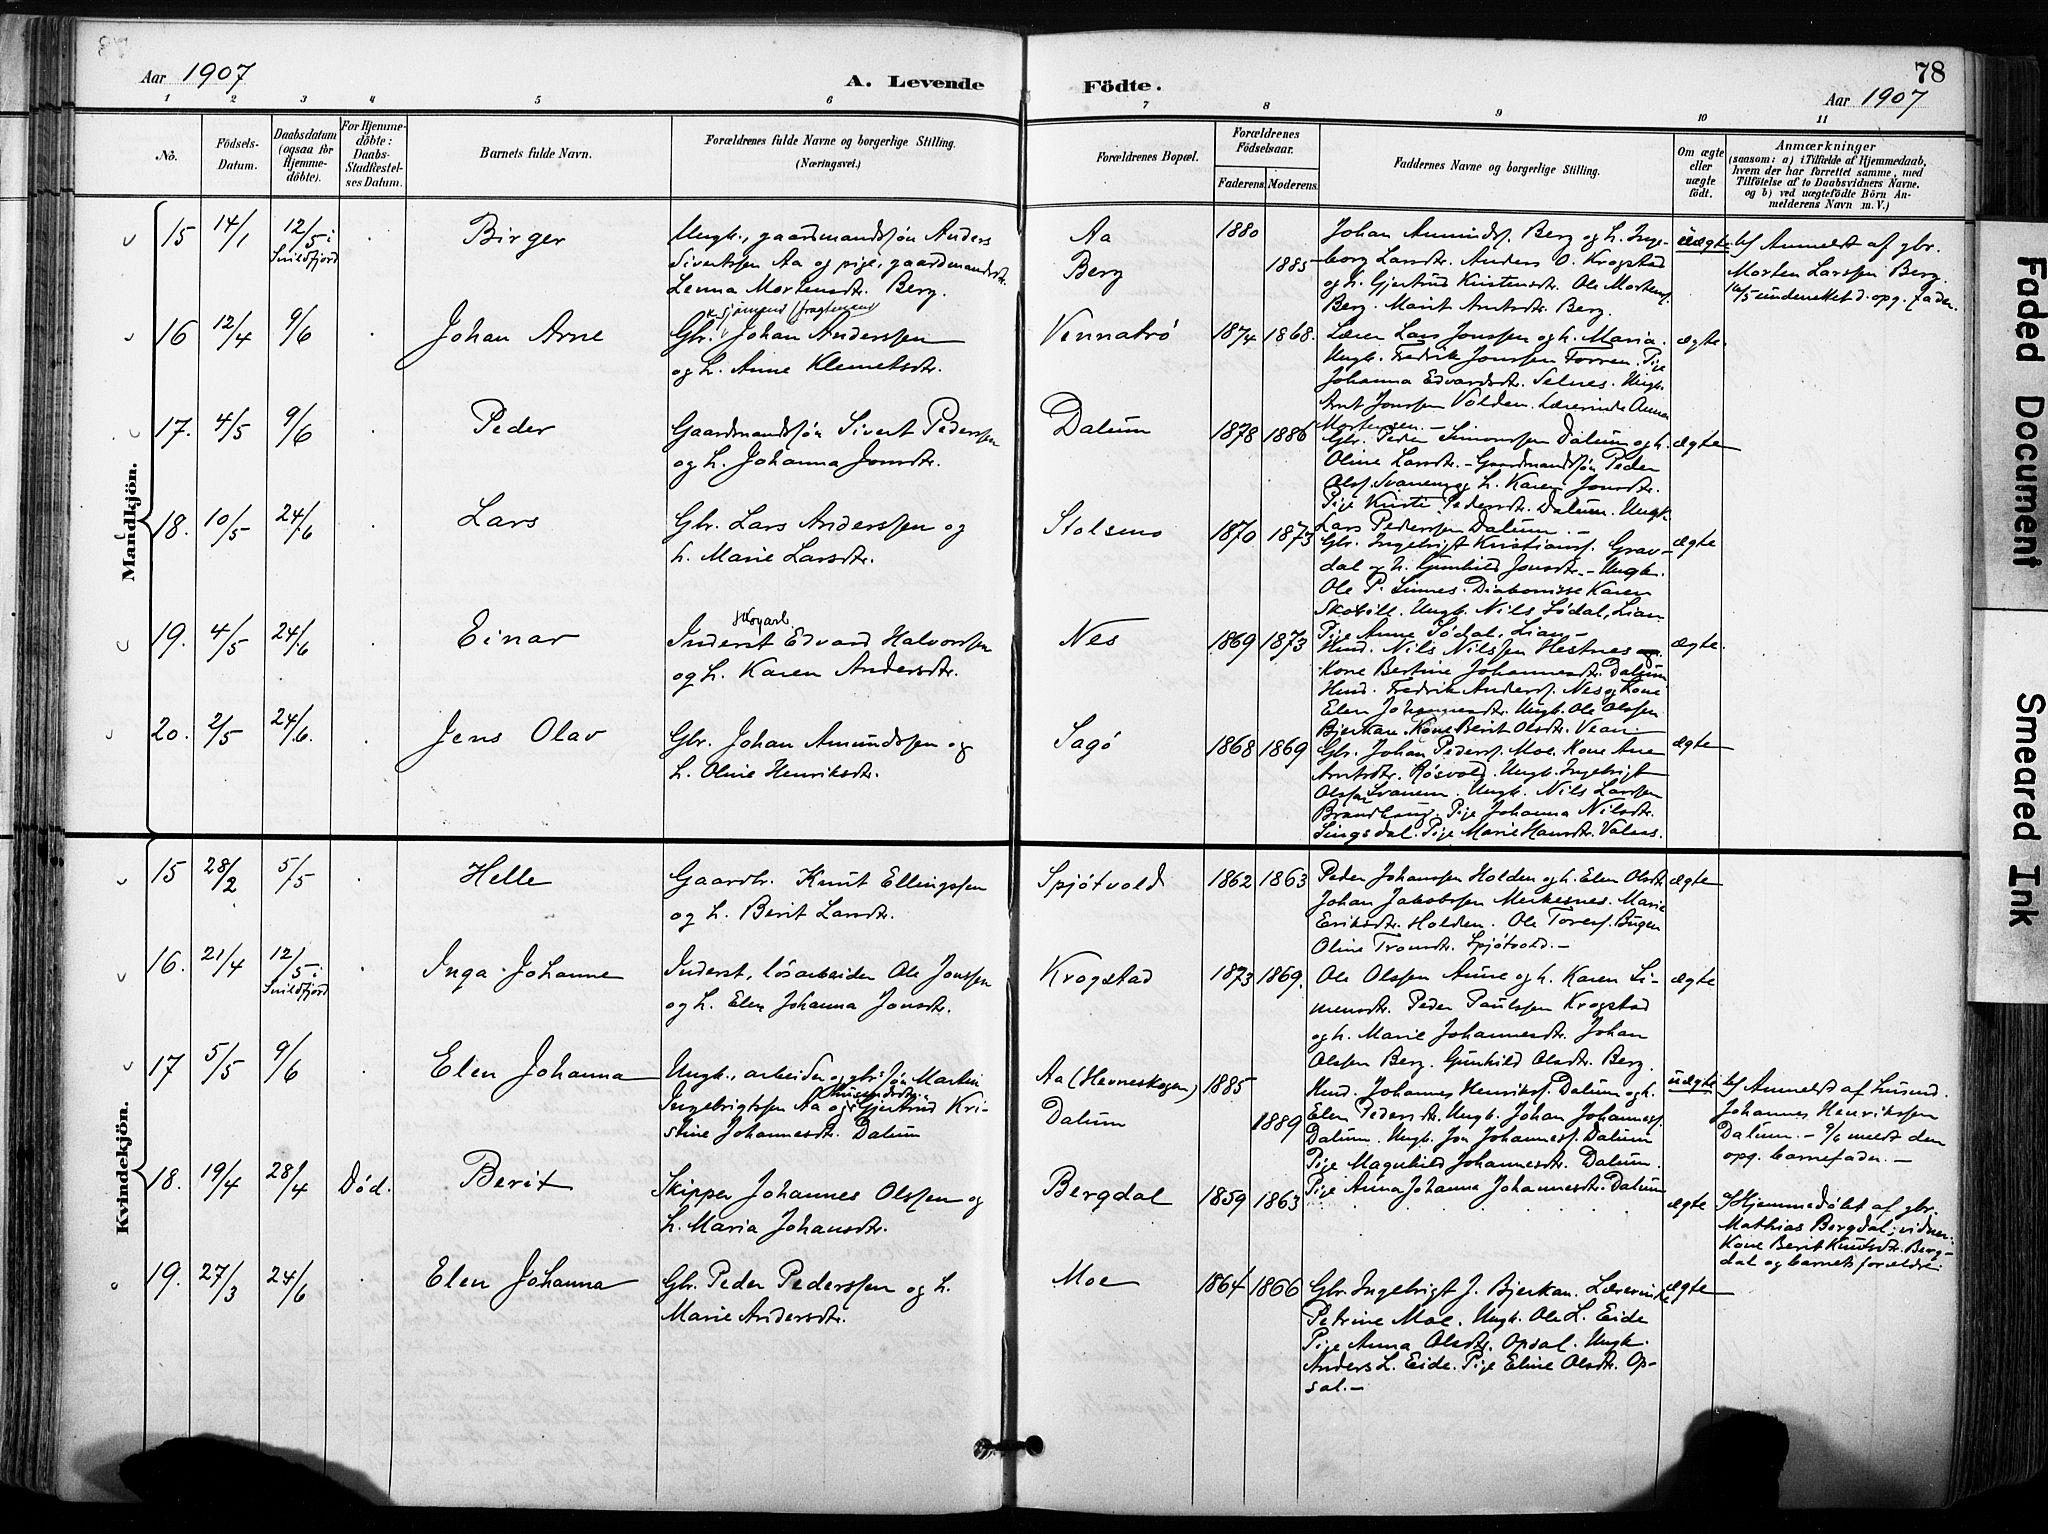 Aar 1907
A. Levende
Födte.
78
Aar 1907
1 2 3 4 5 6 7 8 9 10 11
No.
Födsels-
Datum.
Daabsdatum
(ogsaa for
Hjemme-
döbte).
For Hjemme-
döbte:
Daabs-
Stadfæstel-
ses Datum.
Barnets fulde Navn.
Forældrenes fulde Navne og borgerlige Stilling.
(Næringsvei.)
Forældrenes Bopæl.
Forældrenes
Födselsaar.
Faderens. Moderens.
Faddernes Navne og borgerlige Stilling.
Om ægte
eller
uægte
födt.
Anmærkninger
(saasom: a) i Tilfælde af Hjemmedaab,
hvem der har forrettet samme, med
Tilföielse af to Daabsvidners Navne.
og b) ved uægtefödte Börn An-
melderens Navn m. V.)
Mandkjön.
15 14/1 12/5 i
Snildfjord
Birger
Ungk., gaardmandssøn Anders
Sivertssen Aa og pige, gaardmandsdtr.
Lenna Mortensdtr. Berg.
Aa
Berg
1880
1885
Johan Amundsf. Berg og h. Inge-
borg Larsdtr. Anders O. Krogstad
og h. Gjertrud Kirstensdtr. Ole Mortensf.
Berg. Marit Arntsdtr. Berg.
uægte
b) Anmeldt af gbr.
Morten Larssen Berg.
16/5 underrettet d. opg. fader.
16 12/4 9/6
Johan Arne
Gbr. Johan Anderssen
og h. Anne Klemetsdtr.
Vennatrø
1874 1868.
Lærer Lars Jonssen og h. Maria.
Ungk. Fredrik Jonssen Forren. Pige
Johanna Edvardsdtr. Selnes. Ungk.
Arnt Jonssen Volden. Lærerinde Anna
Mortensen.-
ægte.
17. 4/5 9/6
Peder
Gaardmandssøn Sivert Pederssen
og h. Johanna Jonsdtr.
Dalum
1878 1886
Gbr. Peder Simonssen Dalum og h.
Oline Larsdtr. - Gaardmandssøn Peder
Olsf. Svanem og h. Karen Jonsdtr.
Pige Kirsti Pedersdtr. Dalum. Ungk.
Lars Pederssen Dalum.-
ægte
18. 10/5 24/6
Lars
Gbr. Lars Anderssen og
h. Marie Larsdtr.
Stolsmo
1870 1873
Gbr. Ingebrigt Kristiansf. Grav-
dal og h. Gunhild Jonsdtr. - Ungk.
Ole P. Sinnes. Diakonisse Karen
Ungk. Nils Sødal, Lian
Pige Anne Sødal, Lian -
ægte
19. 4/5 24/6
Einar
Inderst Edvard Halvorssen
og h. Karen Andersdtr.
Nes
1869 1873
Husd. Nils Nilssen Hestnes og
Kone Bertine Johannesdtr. Dalum
Husd. Fredrik Andersf. Nes og Kone
Elen Johannesdtr. Ungk. Ole Olssen
Bjerkan. Kone Berit Olsdtr. Vean.
ægte.
20. 2/5 24/6.
Jens Olav
Gbr. Johan Amundssen og
h. Oline Henriksdtr.
Sagø
1868 1869
Gbr. Johan Pedersf. Moe. Kone Ane
Arntsdtr. Røsvold. Ungk. Ingebrigt
Olssen Svanem. Ungk. Nils Larssen
Brandhaug. Pige Johanna Nilsdtr.
Singsdal. Pige Marie Hansdtr. Valnes.
ægte
Kvindekjön.
15 28/2 5/5
Helle
Gaardbr. Knut Ellingssen
og h. Berit Larsdtr.
Spjøtvold
1862 1863
Peder Johanssen Holden og h. Elen Olsdtr.
Johan Jakobssen Merkesnes. Marie
Eriksdtr. Holden. Ole Toresf. Bugen
Oline Tronsdtr. Spjøtvold.-
ægte
16. 21/4 12/5 i
Snildfjord
Inga Johanne
Inderst, løsarbeider Ole Jonssen
og h. Elen Johanna Jonsdtr.
Krogstad
1873 1869.
Ole Olssen Aune og h. Karen Si-
mensdtr. Peder Paulssen Krogstad
og h. Marie Johannesdtr. Johan
Olssen Berg. Gunhild Olsdtr. Berg.
ægte
17 5/5 9/6
Elen Johanna
Ungk., arbeider og gbr. søn Martin
Ingebrigtssen Aa og Gjertrud Kri-
stine Johannesdtr. Dalum
Aa (Hevneskogen)
Dalum
1885
1889
Husd. Johannes Henriksf. Dalum og h.
Elen Pedersdtr. Ungk. Johan Johannesf.
Dalum. Ungk. Jon Johannesf. Dalum
Pige Magnhild Johannesdtr. Dalum.
Pige Anna Johanna Johannesdtr. Dalum
uægte
b) Anmeldt af husmd.
Johannes Henrikssen
Dalum. - 9/6 meldt den
opg. barnefader.-
18. 19/4 28/4 Død.
Berit
Skipper Johannes Olssen og
h. Maria Johansdtr.
Bergdal
1859 1863
ægte
a) Hjemmedøbt af gbr.
Mathias Bergdal; vidner:
Kone Berit Knutsdtr. Berg-
dal og barnets forældre.
19. 27/3 24/6
Elen Johanna
Gbr. Peder Pederssen og h.
Marie Andersdtr.
Moe
1864 1866
Gbr. Ingebrigt J. Bjerkan. Lærerinde
Petrine Moe. Ungk. Ole L. Eide
Pige Anna Olsdtr. Opsal. Ungk.
Anders L. Eide. Pige Eline Olsdtr. Op-
sal.-
ægte
Faded Document
Smeared Ink